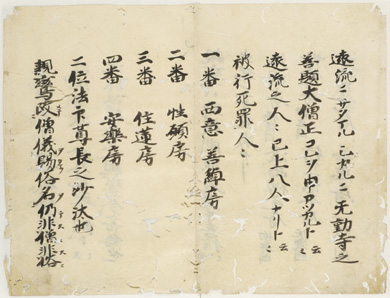 遠流ニサタマル シカルニ 无動寺之
善題大僧正 コレヲ申アツカルト云〻
遠流之人〻已上八人ナリト云〻
被行死罪人〻
一番 西意善綽房
二番 性願房
三番 住蓮房
四番 安樂房
二位法印尊長之沙汰也
親鸞改僧儀賜俗名仍非僧非俗